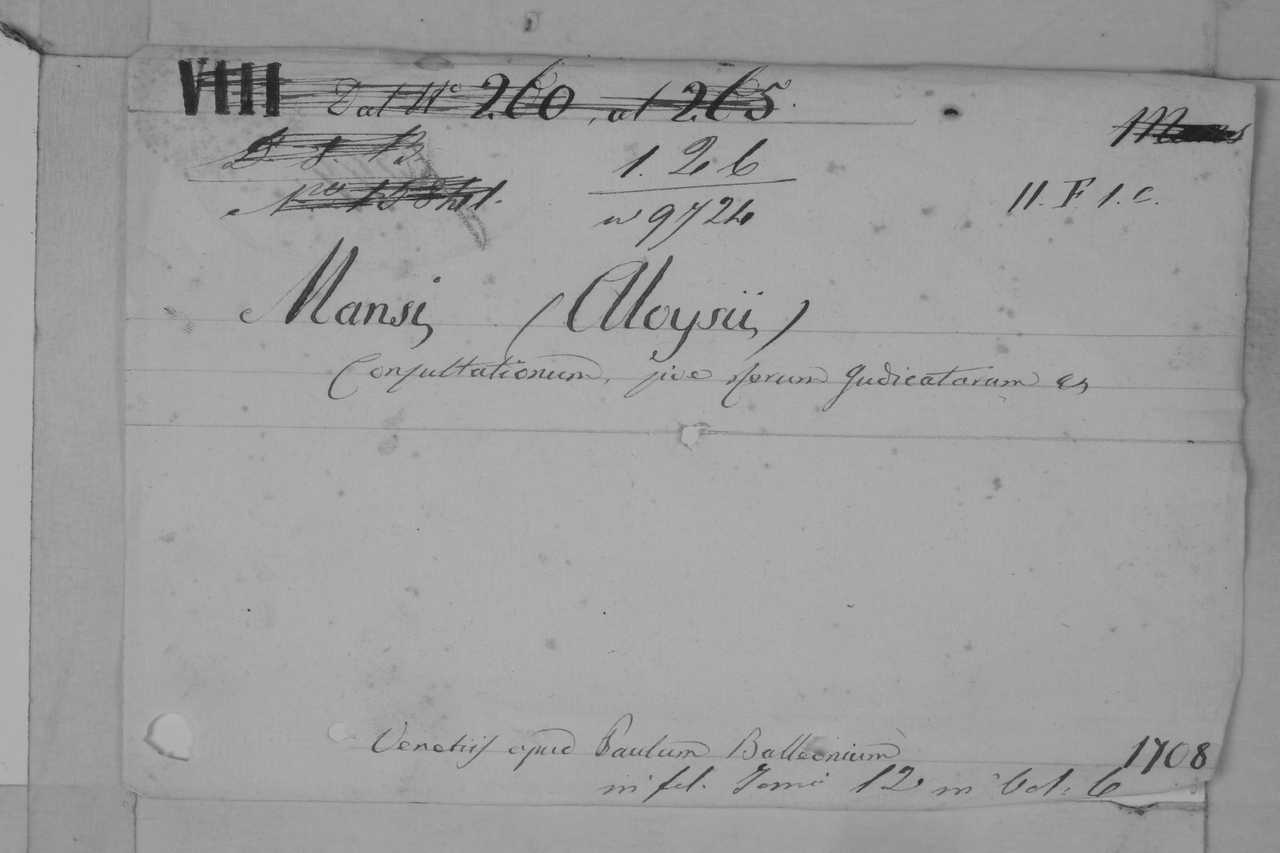 VIII Dal N.º 260, al 265.
D. 8. B. 1. 2 6
Nro 13841. n 9724 II. F 1. C.
Mansi, (Aloysii)
Consultationum, sive Rerum Judicatarum &
Venetiis apud Paulum Balleonium 1708
in fol. Tomi 12 in Vol: 6